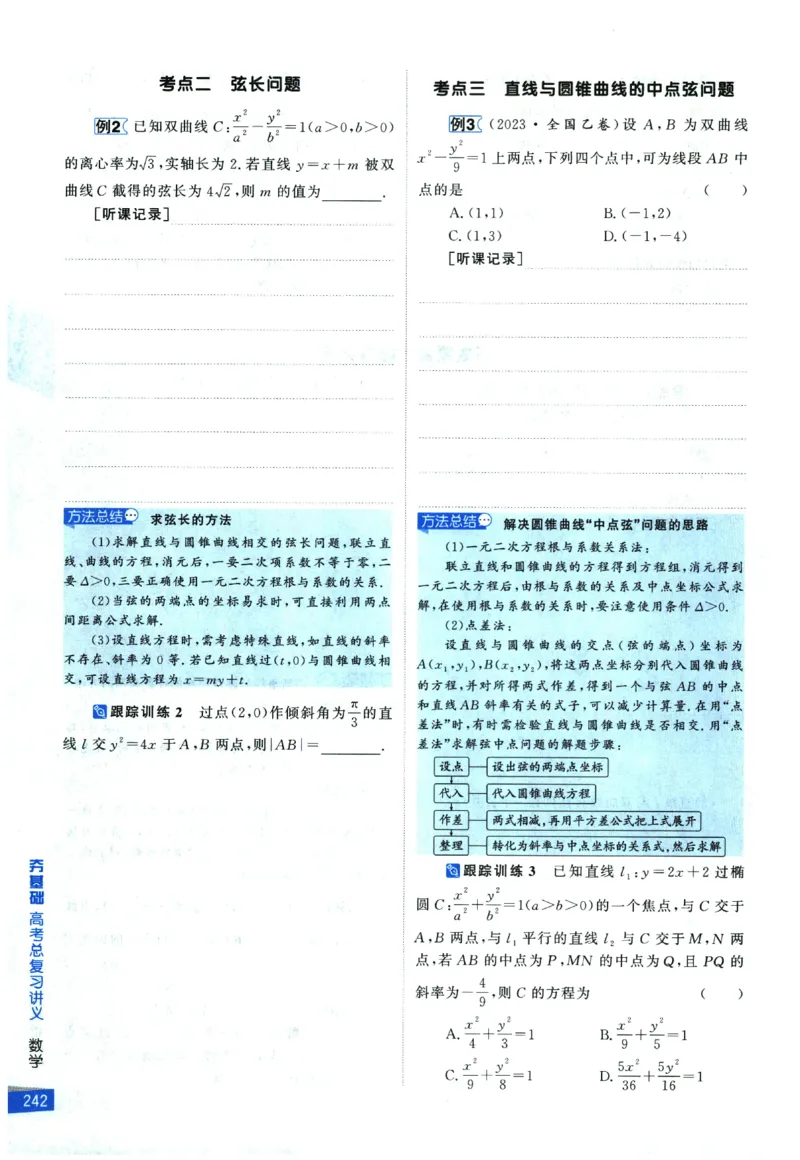 考点二 直长问题
例2 已知双曲线 C:x²/a²-y²/b²=1(a>0,b>0)
的离心率为√3,实轴长为 2.若直线 y=x+m 被双
曲线C 截得的弦长为 4√2,则 m 的值为________.
[听课记录]
方法总结 求弦长的方法
(1)求解直线与圆锥曲线相交的弦长问题,联立直
线、曲线的方程,消元后,一要二次项系数不等于零,二
要 Δ>0,三要正确使用一元二次方程根与系数的关系.
(2)当弦的两端点的坐标易求时,可直接利用两点
间距离公式求解.
(3)设直线方程时,需考虑特殊直线,如直线的斜率
不存在、斜率为 0 等.若已知直线过(t,0)与圆锥曲线相
交,可设直线方程为 x=my+t.
跟踪训练 2 过点(2,0)作倾斜角为π/3的直
线 l 交 y²=4x 于 A,B 两点,则|AB|=________.
考点三 直线与圆锥曲线的中点弦问题
例3 (2023·全国乙卷)设 A,B 为双曲线
x²-y²/9=1上两点,下列四个点中,可为线段 AB 中
点的是 ( )
A.(1,1) B.(-1,2)
C.(1,3) D.(-1,-4)
[听课记录]
方法总结 解决圆锥曲线“中点弦”问题的思路
(1)一元二次方程根与系数关系法:
联立直线和圆锥曲线的方程得到方程组,消元得到
一元二次方程后,由根与系数的关系及中点坐标公式求
解,在使用根与系数的关系时,要注意使用条件 Δ>0.
(2)点差法:
设直线与圆锥曲线的交点(弦的端点)坐标为
A(x₁,y₁),B(x₂,y₂),将这两点坐标分别代入圆锥曲线
的方程,并对所得两式作差,得到一个与弦 AB 的中点
和直线AB 斜率有关的式子,可以减少计算量.在用“点
差法”时,有时需检验直线与圆锥曲线是否相交.用“点
差法”求解弦中点问题的解题步骤:
设点 设出弦的两端点坐标
代入 代入圆锥曲线方程
作差 两式相减,再用平方差公式把上式展开
整理 转化为斜率与中点坐标的关系式,然后求解
跟踪训练 3 已知直线 l₁:y=2x+2 过椭
圆 C:x²/a²+y²/b²=1(a>b>0)的一个焦点,与 C 交于
A,B 两点,与 l₁ 平行的直线 l₂ 与 C 交于 M,N 两
点,若 AB 的中点为 P,MN 的中点为 Q,且 PQ 的
斜率为-4/9,则 C 的方程为 ( )
A.x²/4+y²/3=1 B.x²/9+y²/5=1
C.x²/9+y²/8=1 D.5x²/36+5y²/16=1
夯基础 高考总复习讲义 数学
242